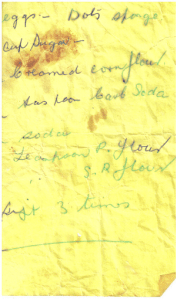 eggs - Dots sponge
cup Sugar -
creamed cornflour
- tas poon Carb Soda
sodas
teaspoon P. flour
S. R flour
Sift 3 times